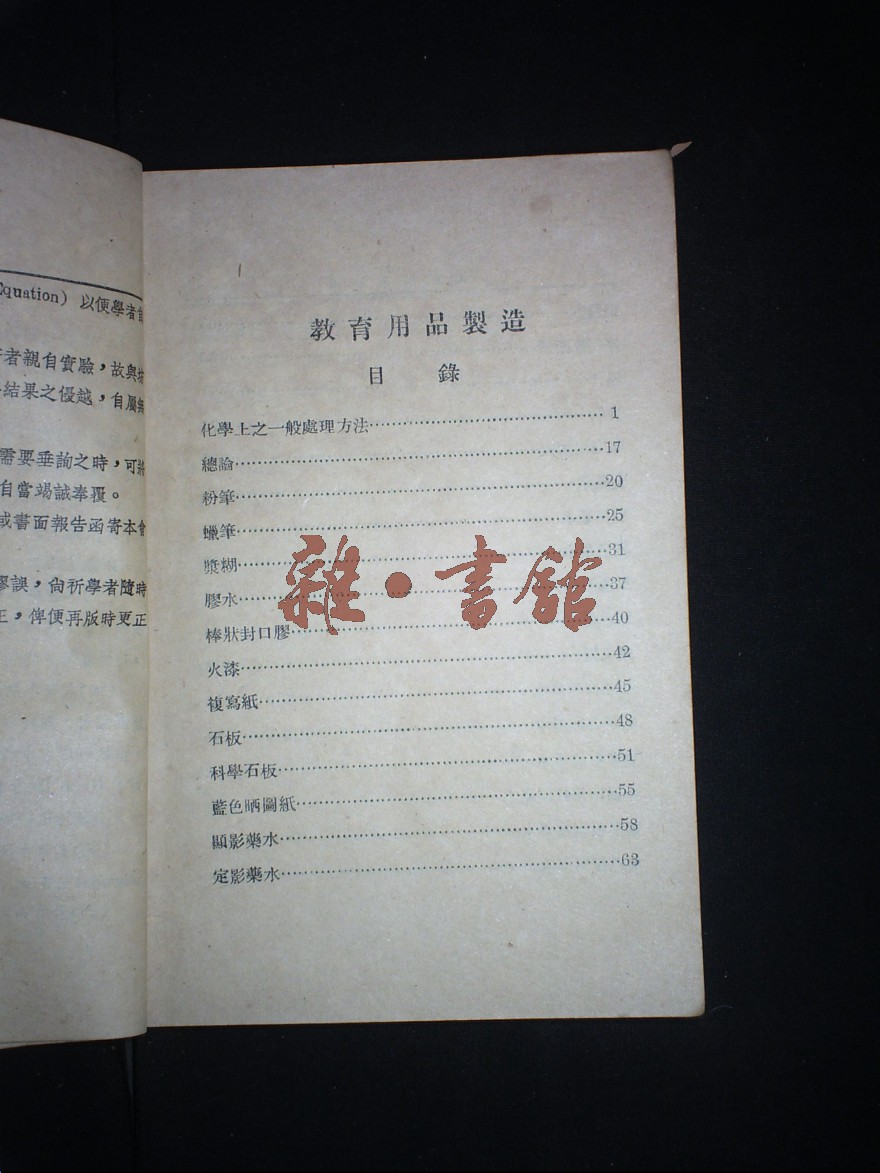 Equation) 以便學者
者親自實驗，故與
結果之優越，自屬無
需要垂詢之時，可將
自當竭誠奉覆。
或書面報告函寄本會
謬誤，尙祈學者隨時
正，俾便再版時更正
教育用品製造
目錄
化學上之一般處理方法…………1
總論…………17
粉筆…………20
蠟筆…………25
漿糊…………31
膠水…………37
棒狀封口膠…………40
火漆…………42
複寫紙…………45
石板…………48
科學石板…………51
藍色晒圖紙…………55
顯影藥水…………58
定影藥水…………63
雜·書館